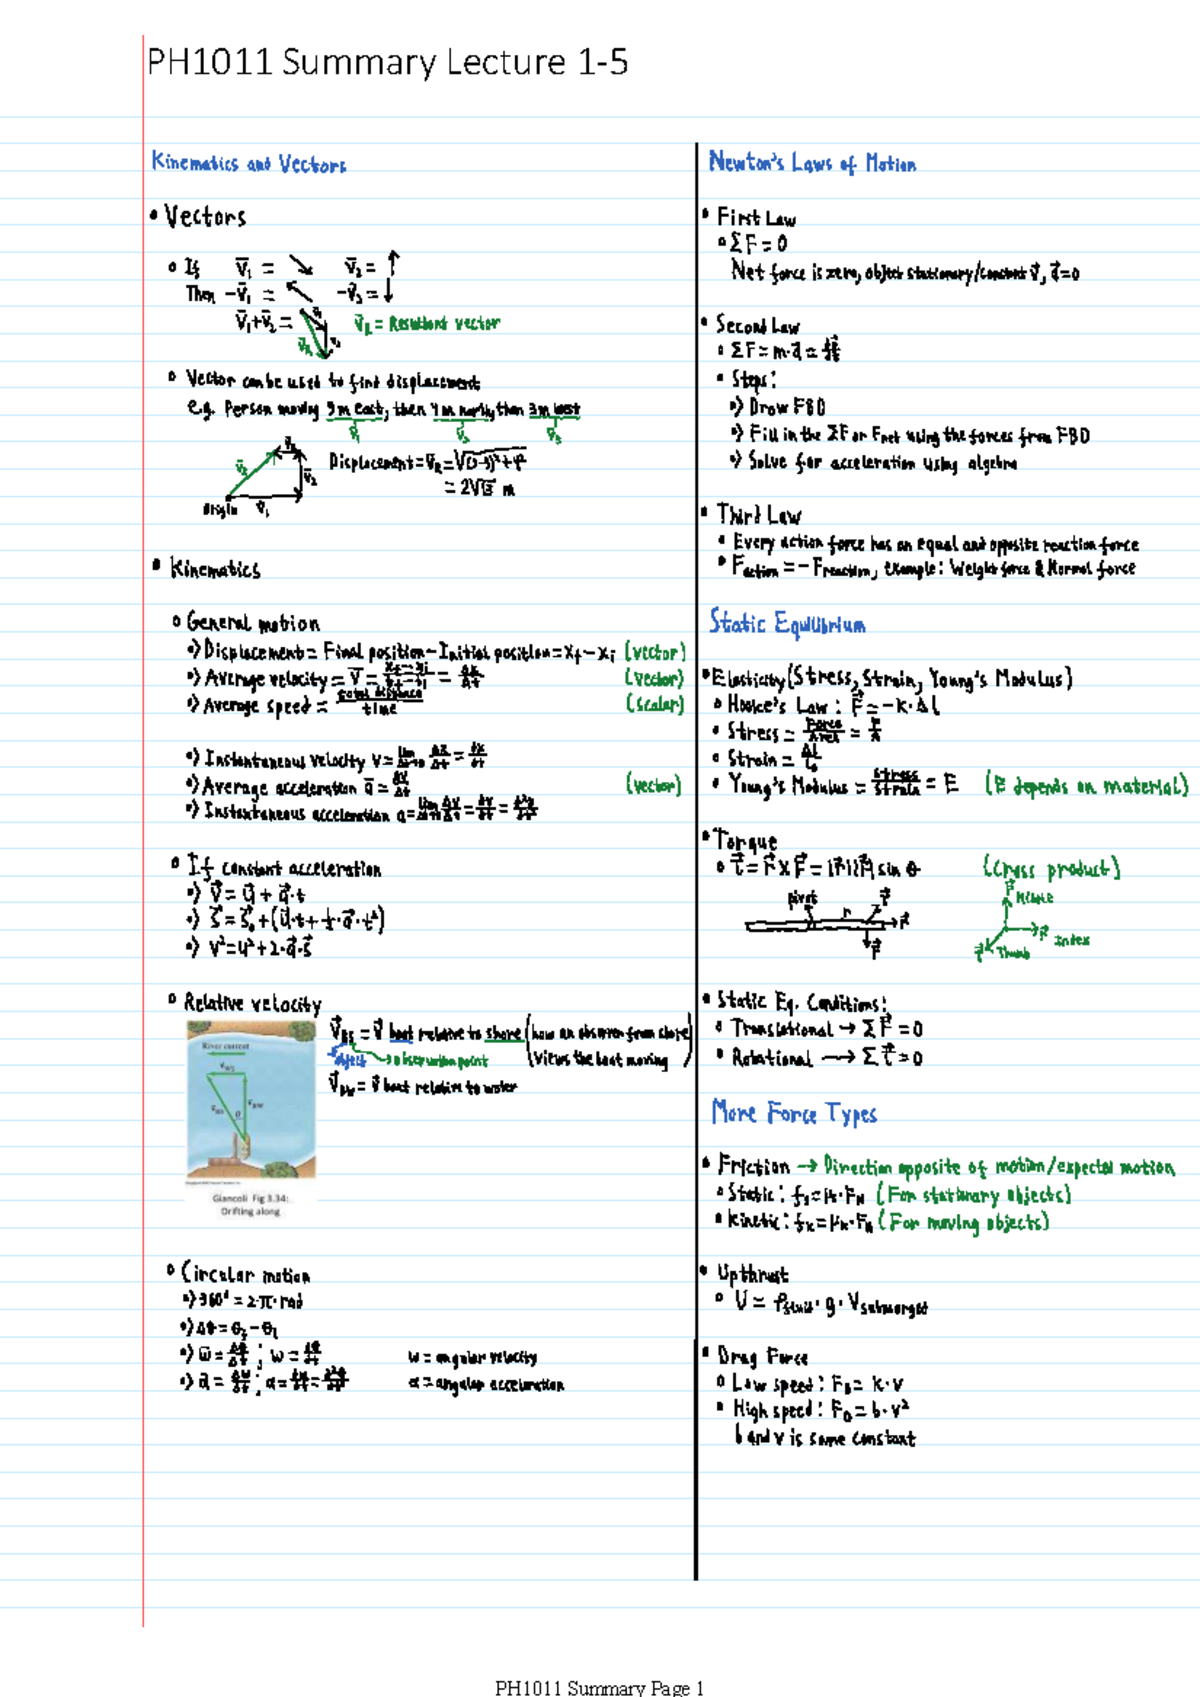 PH1011 Summary Lecture 1-5
Kinematics and Vectors
• Vectors
∘ If V̄₁ = ↘ V̄₂ = ↑
Then -V̄₁ = ↖ -V̄₂ = ↓
V̄₁+V̄₂ = V̄R = Resultant vector
∘ Vector can be used to find displacement
e.g. Person moving 5m east, then 4m north, then 3m west
V̄₁ V̄₂ V̄₃
Displacement = V̄R = √(5-3)²+4²
= 2√5 m
Origin V̄₁
• Kinematics
∘ General motion
→) Displacement = Final position - Initial position = xf - xi (vector)
→) Average velocity = V̄ = xf-xi/tf-ti = Δx/Δt (vector)
→) Average speed = total distance/time (scalar)
→) Instantaneous velocity v = lim Δt→0 Δx/Δt = dx/dt
→) Average acceleration ā = Δv/Δt (vector)
→) Instantaneous acceleration a = lim Δt→0 Δv/Δt = dv/dt = d²x/dt²
∘ If constant acceleration
→) v⃗ = u⃗ + a⃗·t
→) s⃗ = s⃗₀ + (u⃗·t + ½·a⃗·t²)
→) v² = u² + 2·a⃗·s⃗
∘ Relative velocity
V⃗BS = V⃗ boat relative to shore (how an observer from shore
object → observation point (views the boat moving)
V⃗BW = V⃗ boat relative to water
River current
Giancoli Fig 3.34:
Drifting along
∘ Circular motion
→) 360° = 2·π·rad
→) Δθ = θ₂ - θ₁
→) ω̄ = Δθ/Δt ; ω = dθ/dt ω = angular velocity
→) ᾱ = Δω/Δt ; α = dω/dt = d²θ/dt² α = angular acceleration
Newton's Laws of Motion
• First Law
∘ ΣF = 0
Net force is zero, object stationary/constant v⃗, a⃗=0
• Second Law
∘ ΣF = m·a⃗ =
• Steps:
→) Draw FBD
→) Fill in the ΣF or Fnet using the forces from FBD
→) Solve for acceleration using algebra
• Third Law
• Every action force has an equal and opposite reaction force
• Faction = -Freaction, example: Weight force & Normal force
Static Equilibrium
• Elasticity (Stress, Strain, Young's Modulus)
∘ Hooke's Law : F⃗ = -k·ΔL
• Stress = Force/Area = F/A
∘ Strain = ΔL/L₀
• Young's Modulus = Stress/Strain = E (E depends on material)
• Torque
∘ τ⃗ = r⃗ × F⃗ = |r⃗||F⃗| sin θ (cross product)
pivot r F⃗
F⃗
F⃗
F⃗ Middle
r⃗ Index
τ⃗ Thumb
• Static Eq. Conditions:
• Translational → ΣF⃗ = 0
• Rotational → Στ⃗ = 0
More Force Types
• Friction → Direction opposite of motion/expected motion
∘ Static : fs = μ·FN (For stationary objects)
• kinetic : fk = μk·FN (For moving objects)
• Upthrust
∘ U = ρfluid·g·Vsubmerged
• Drag Force
∘ Low speed : FD = k·v
• High speed : FD = b·v²
b and v is some constant
PH1011 Summary Page 1